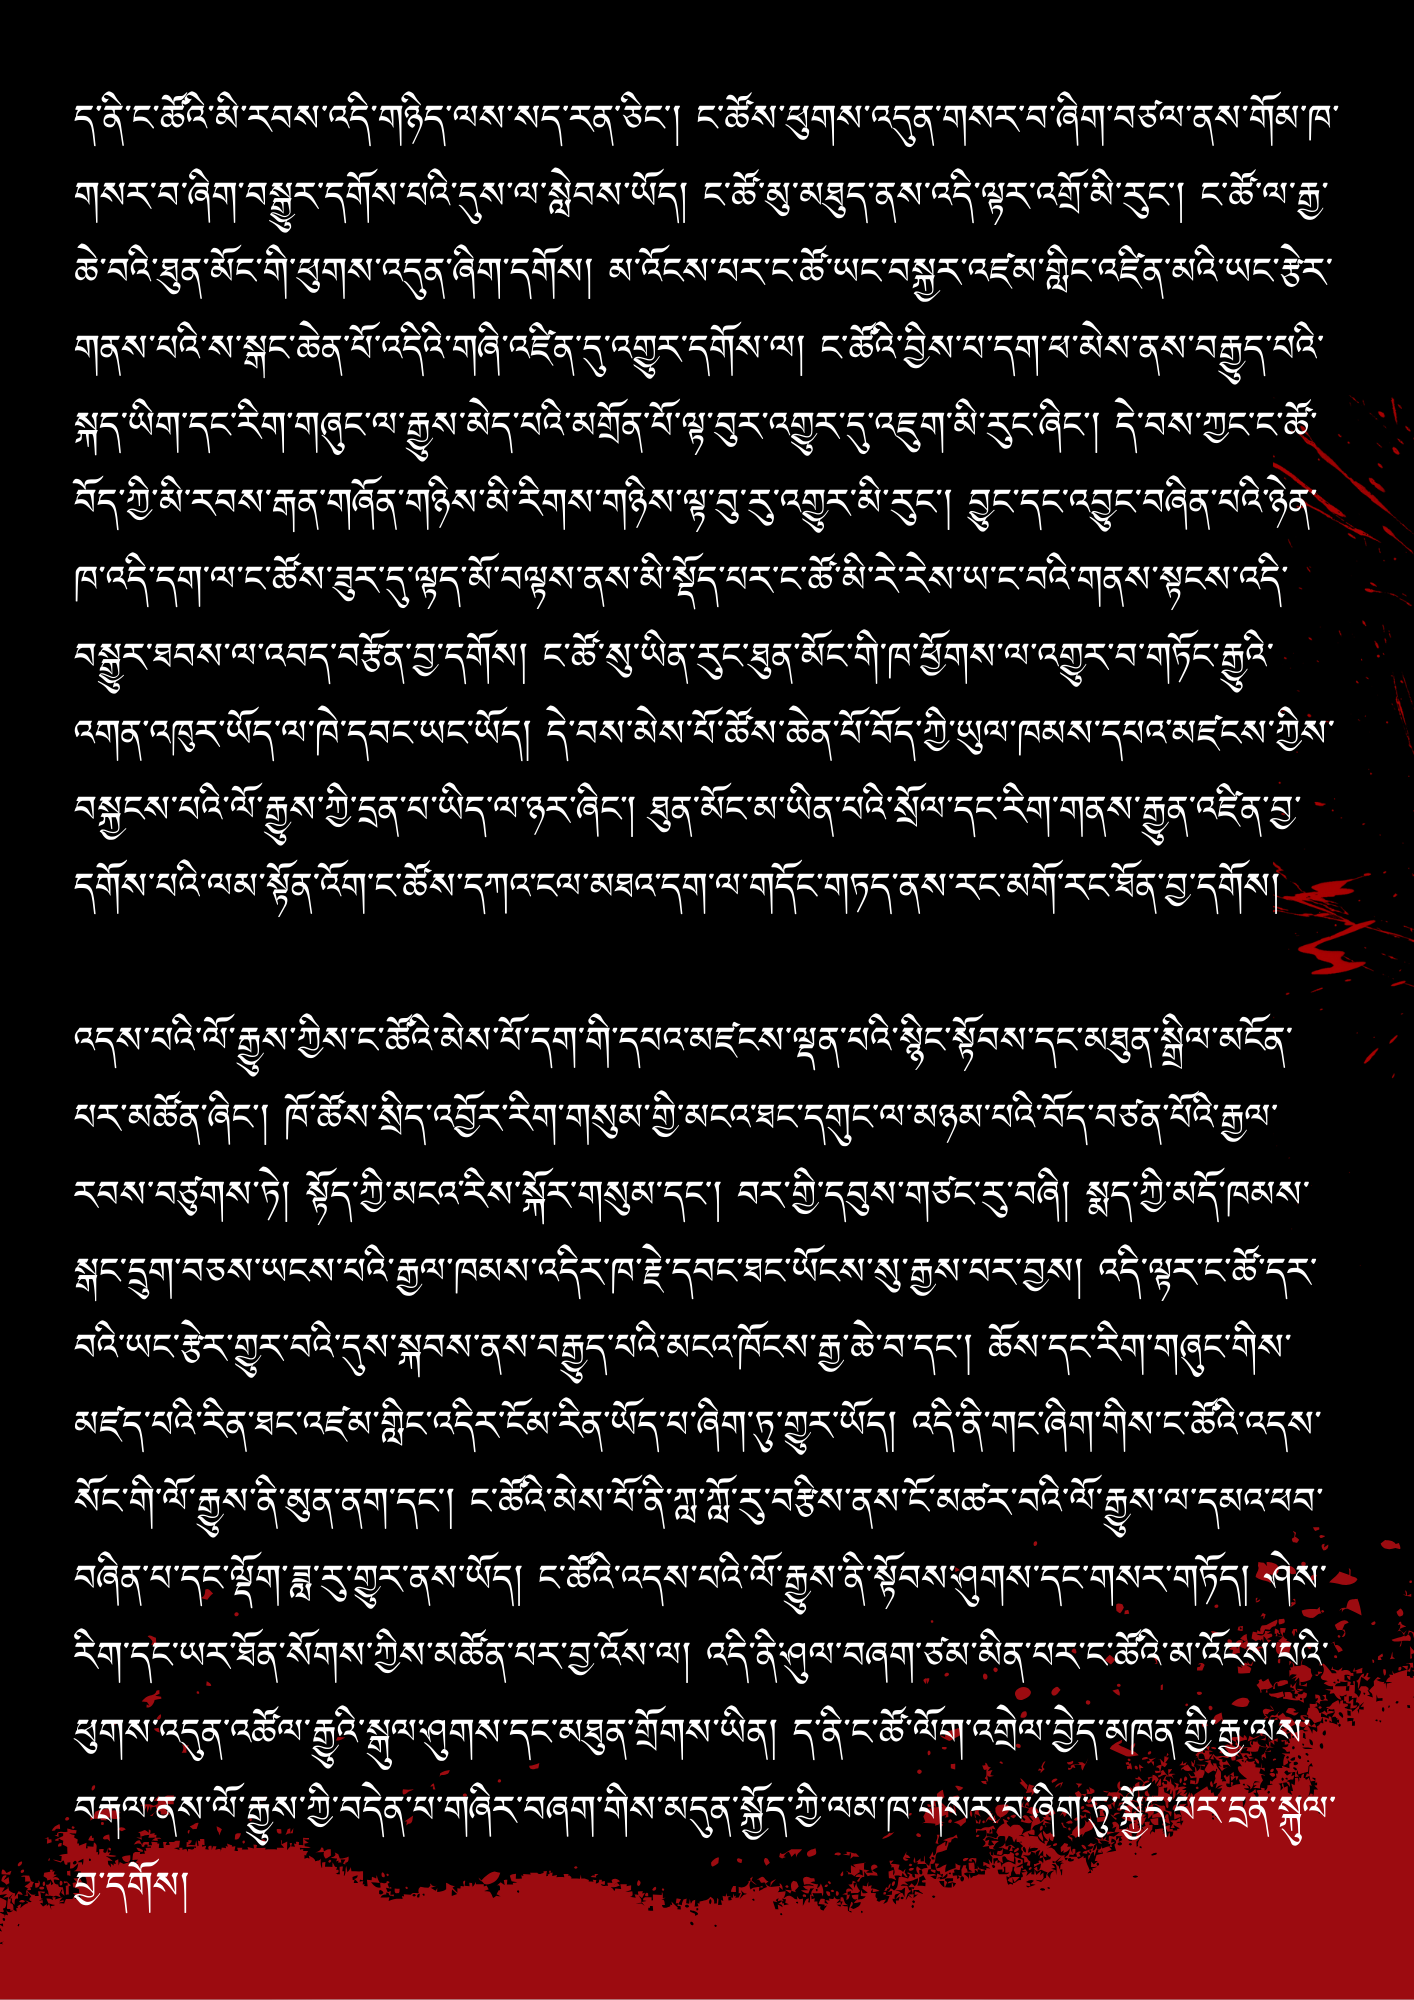 ད་ནི་ང་ཚོའི་མི་རབས་འདི་གཉིད་ལས་སད་རན་ཅིང་། ང་ཚོས་ཕུགས་འདུན་གསར་བ་ཞིག་བཙལ་ནས་གོམ་ཁ་
གསར་བ་ཞིག་བསྒྱུར་དགོས་པའི་དུས་ལ་སླེབས་ཡོད། ང་ཚོ་མུ་མཐུད་ནས་འདི་ལྟར་འགྲོ་མི་རུང་། ང་ཚོ་ལ་རྒྱ་
ཆེ་བའི་ཐུན་མོང་གི་ཕུགས་འདུན་ཞིག་དགོས། མ་འོངས་པར་ང་ཚོ་ཡང་བསྐྱར་འཛམ་གླིང་འཛིན་མའི་ཡང་རྩེར་
གནས་པའི་ས་སྒང་ཆེན་པོ་འདིའི་གཞི་འཛིན་དུ་འགྱུར་དགོས་ལ། ང་ཚོའི་བྱིས་པ་དག་ཕ་མེས་ནས་བརྒྱུད་པའི་
སྐད་ཡིག་དང་རིག་གཞུང་ལ་རྒྱུས་མེད་པའི་མགྲོན་པོ་ལྟ་བུར་འགྱུར་དུ་འཇུག་མི་རུང་ཞིང་། དེ་བས་ཀྱང་ང་ཚོ་
བོད་ཀྱི་མི་རབས་རྒན་གཞོན་གཉིས་མི་རིགས་གཉིས་ལྟ་བུ་རུ་འགྱུར་མི་རུང་། བྱུང་དང་འབྱུང་བཞིན་པའི་ཉེན་
ཁ་འདི་དག་ལ་ང་ཚོས་ཟུར་དུ་ལྟད་མོ་བལྟས་ནས་མི་སྡོད་པར་ང་ཚོ་མི་རེ་རེས་ཡ་ང་བའི་གནས་སྟངས་འདི་
བསྒྱུར་ཐབས་ལ་འབད་བརྩོན་བྱ་དགོས། ང་ཚོ་སུ་ཡིན་རུང་ཐུན་མོང་གི་ཁ་ཕྱོགས་ལ་འགྱུར་བ་གཏོང་རྒྱུའི་
འགན་འཁུར་ཡོད་ལ་ཁེ་དབང་ཡང་ཡོད། དེ་བས་མེས་པོ་ཚོས་ཆེན་པོ་བོད་ཀྱི་ཡུལ་ཁམས་དཔའ་མཛངས་ཀྱིས་
བསྐྱངས་པའི་ལོ་རྒྱུས་ཀྱི་དྲན་པ་ཡིད་ལ་ཉར་ཞིང་། ཐུན་མོང་མ་ཡིན་པའི་སྲོལ་དང་རིག་གནས་རྒྱུན་འཛིན་བྱ་
དགོས་པའི་ལམ་སྟོན་འོག་ང་ཚོས་དཀའ་ངལ་མཐའ་དག་ལ་གདོང་གཏད་ནས་རང་མགོ་རང་ཐོན་བྱ་དགོས།
འདས་པའི་ལོ་རྒྱུས་ཀྱིས་ང་ཚོའི་མེས་པོ་དག་གི་དཔའ་མཛངས་ལྡན་པའི་སྙིང་སྟོབས་དང་མཐུན་སྒྲིལ་མངོན་
པར་མཚོན་ཞིང་། ཁོ་ཚོས་སྲིད་འབྱོར་རིག་གསུམ་གྱི་མངའ་ཐང་དགུང་ལ་མཉམ་པའི་བོད་བཙན་པོའི་རྒྱལ་
རབས་བཙུགས་ཏེ། སྟོད་ཀྱི་མངའ་རིས་སྐོར་གསུམ་དང་། བར་གྱི་དབུས་གཙང་རུ་བཞི། སྨད་ཀྱི་མདོ་ཁམས་
སྒང་དྲུག་བཅས་ཡངས་པའི་རྒྱལ་ཁམས་འདིར་ཁ་རྗེ་དབང་ཐང་ཡོངས་སུ་རྒྱས་པར་བྱས། འདི་ལྟར་ང་ཚོ་དར་
བའི་ཡང་རྩེར་གྱུར་བའི་དུས་སྐབས་ནས་བརྒྱུད་པའི་མངའ་ཁོངས་རྒྱ་ཆེ་བ་དང་། ཆོས་དང་རིག་གཞུང་གིས་
མཛད་པའི་རིན་ཐང་འཛམ་གླིང་འདིར་ངོམ་རིན་ཡོད་པ་ཞིག་ཏུ་གྱུར་ཡོད། འདི་ནི་གང་ཞིག་གིས་ང་ཚོའི་འདས་
སོང་གི་ལོ་རྒྱུས་ནི་མུན་ནག་དང་། ང་ཚོའི་མེས་པོ་ནི་ཀླ་ཀློ་རུ་བརྩིས་ནས་ངོ་མཚར་བའི་ལོ་རྒྱུས་ལ་དམའ་ཕབ་
བཞིན་པ་དང་ལྡོག་ཟླ་རུ་གྱུར་ནས་ཡོད། ང་ཚོའི་འདས་པའི་ལོ་རྒྱུས་ནི་སྟོབས་ཤུགས་དང་གསར་གཏོད། ཤེས་
རིག་དང་ཡར་ཐོན་སོགས་ཀྱིས་མཚོན་པར་བྱ་འོས་ལ། འདི་ནི་ཤུལ་བཞག་ཙམ་མིན་པར་ང་ཚོའི་མ་འོངས་པའི་
ཕུགས་འདུན་འཚོལ་རྒྱུའི་སྒུལ་ཤུགས་དང་མཐུན་གྲོགས་ཡིན། ད་ནི་ང་ཚོ་ལོག་འགྲེལ་བྱེད་མཁན་གྱི་རྒྱ་ལས་
བརྒལ་ནས་ལོ་རྒྱུས་ཀྱི་བདེན་པ་གཞིར་བཞག་གིས་མདུན་སྐྱོད་ཀྱི་ལམ་ཁ་གསར་བ་ཞིག་ཏུ་སྐྱོད་པར་དྲན་སྐུལ་
བྱ་དགོས།